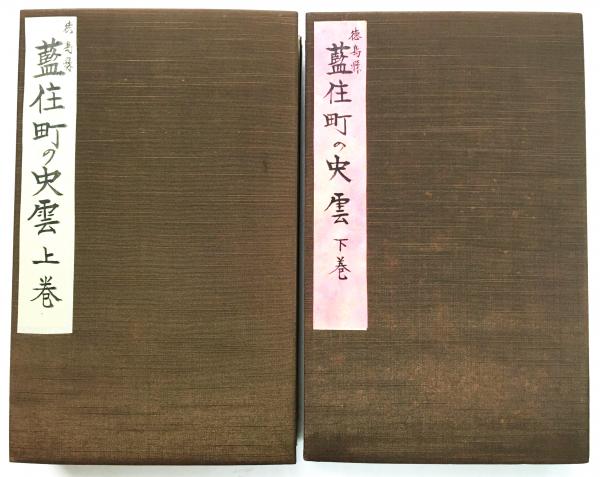 徳島縣
藍住町の史雲 上巻
徳島縣
藍住町の史雲 下巻